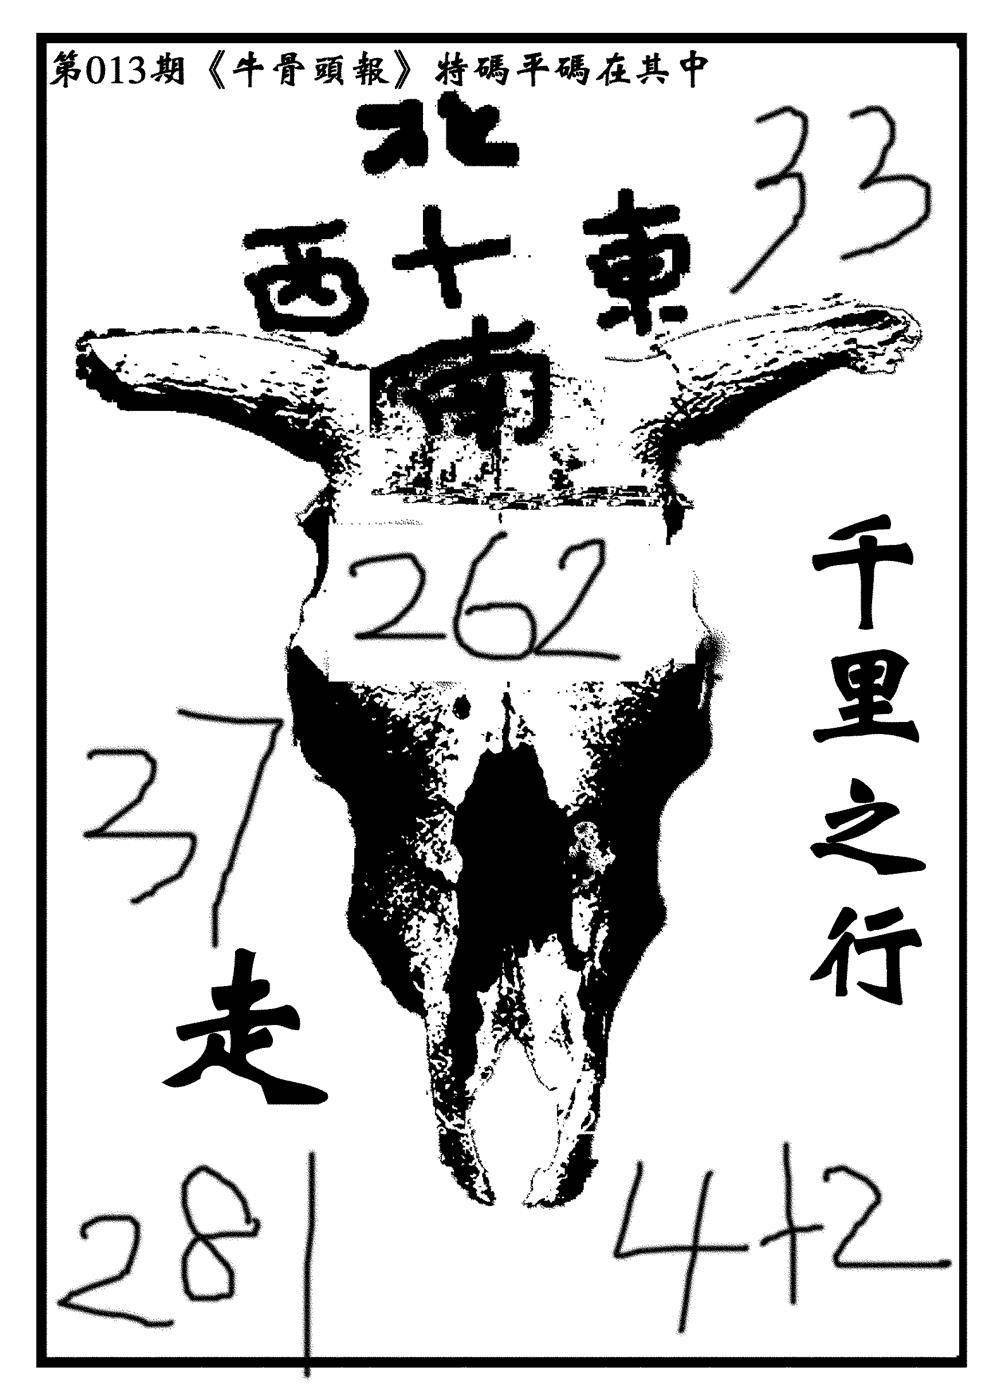 第013期《牛骨頭報》特碼平碼在其中
北
33
西十東
南
262
千里之行
37
走
281
4+2